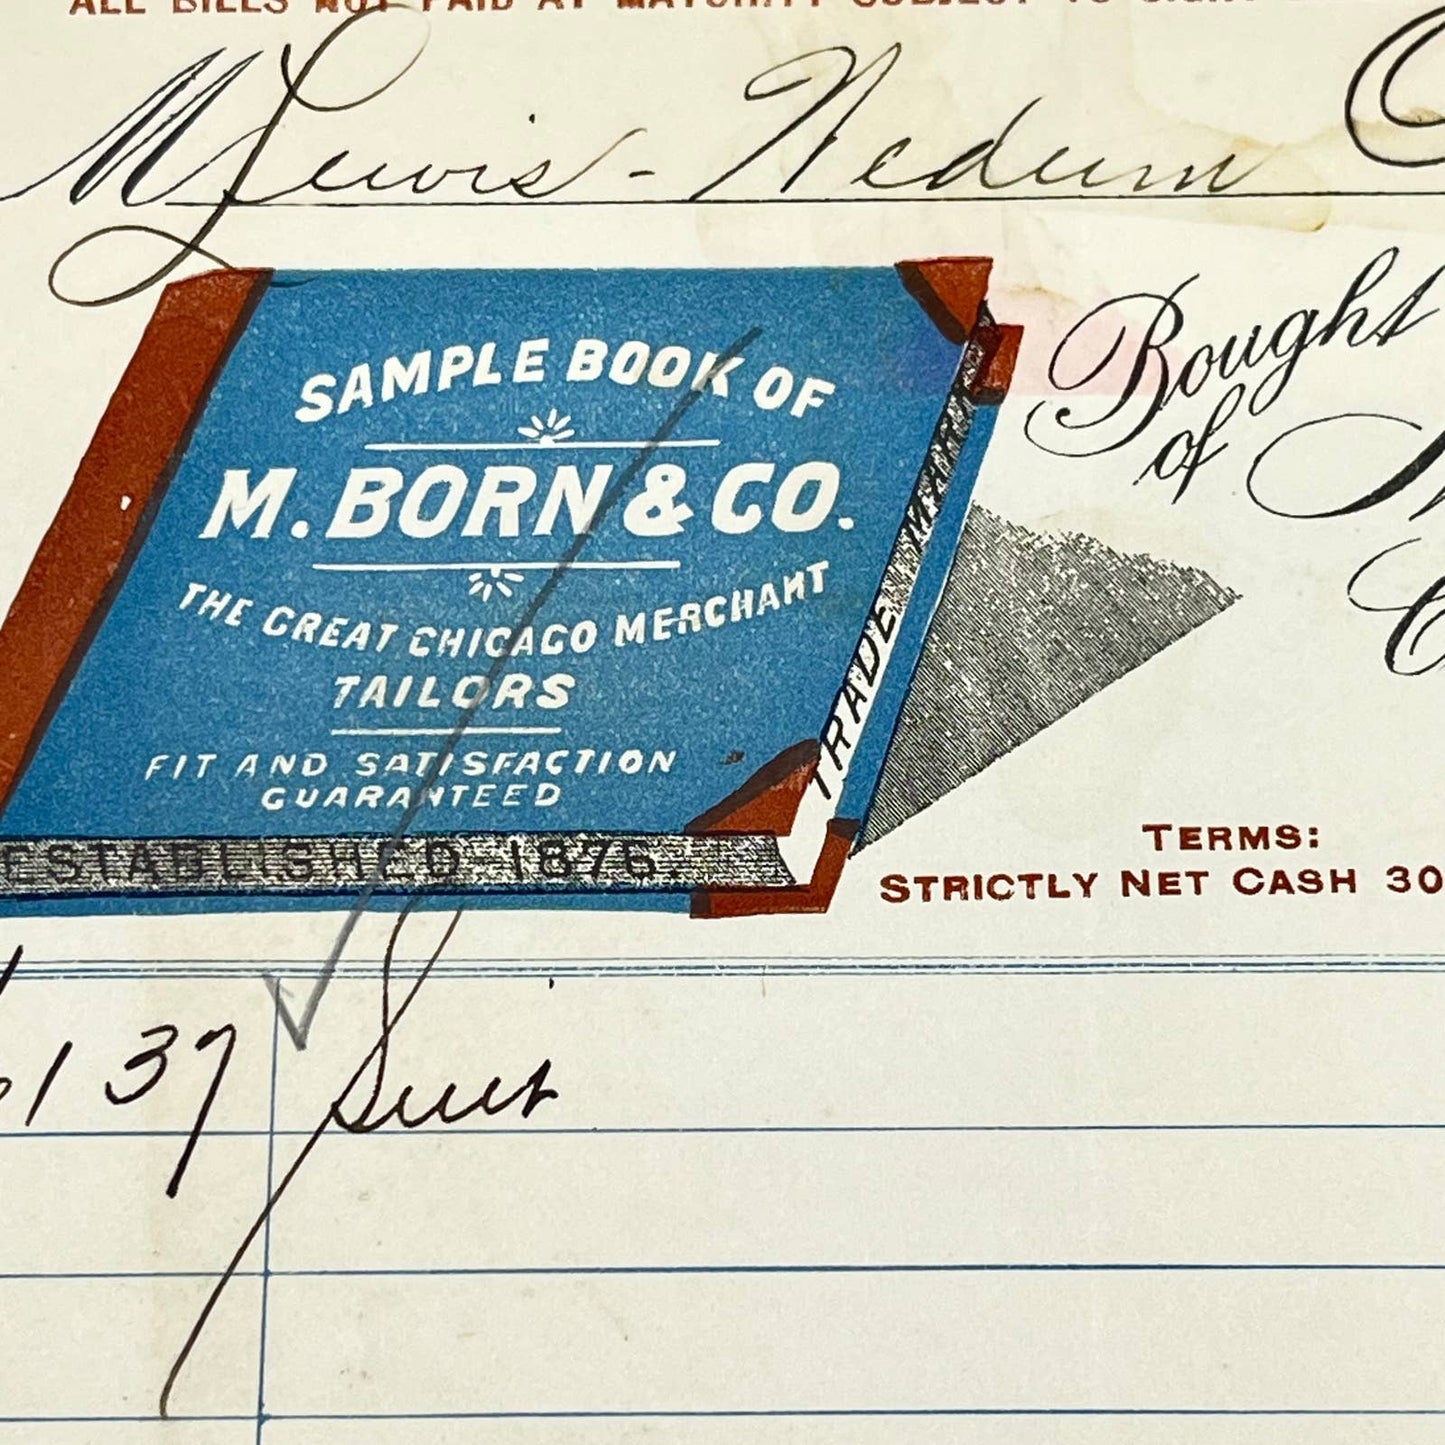 ALL BILLS NOT PAID AT MATURITY SUBJECT TO SIGHT
M Lewis - Nedum
SAMPLE BOOK OF
M. BORN & CO.
THE GREAT CHICAGO MERCHANT
TAILORS
FIT AND SATISFACTION
GUARANTEED
TRADE MARK
ESTABLISHED 1876.
Bought
of
TERMS:
STRICTLY NET CASH 30
137 Suit